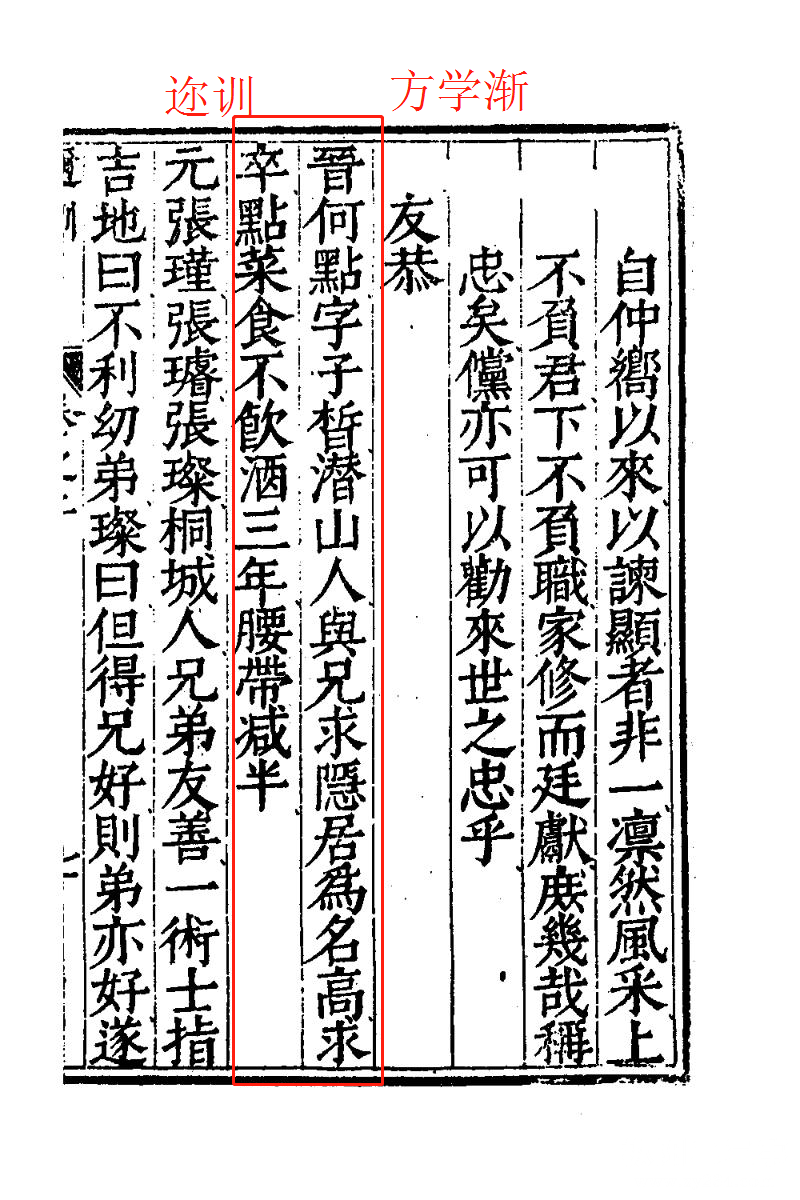 方学渐
迩训
自仲嚮以來以諫顯者非一凛然風采上
不負君下不負職家修而廷獻庶幾哉稱
忠矣儻亦可以勸來世之忠乎
友恭
晉何點字子晳潜山人與兄求隱居爲名高求
卒點菜食不飲酒三年腰帶减半
元張瑾張璿張璨桐城人兄弟友善一術士指
吉地曰不利幼弟璨曰但得兄好則弟亦好遂